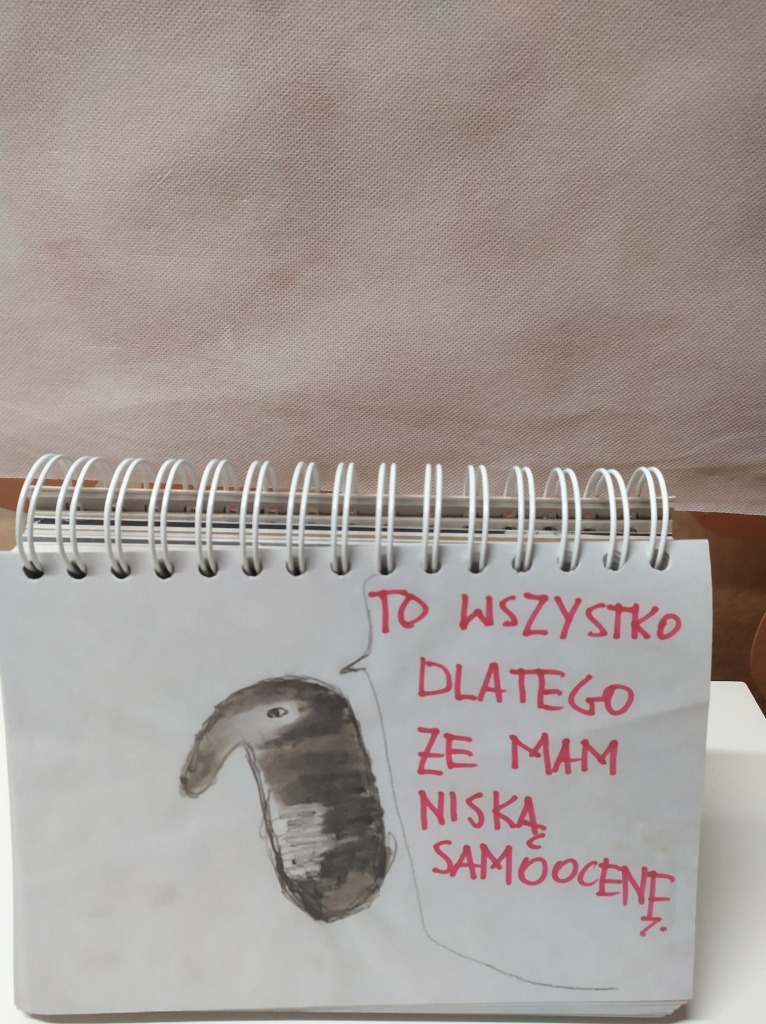 TO WSZYSTKO
DLATEGO
ŻE MAM
NISKĄ
SAMOOCENĘ.